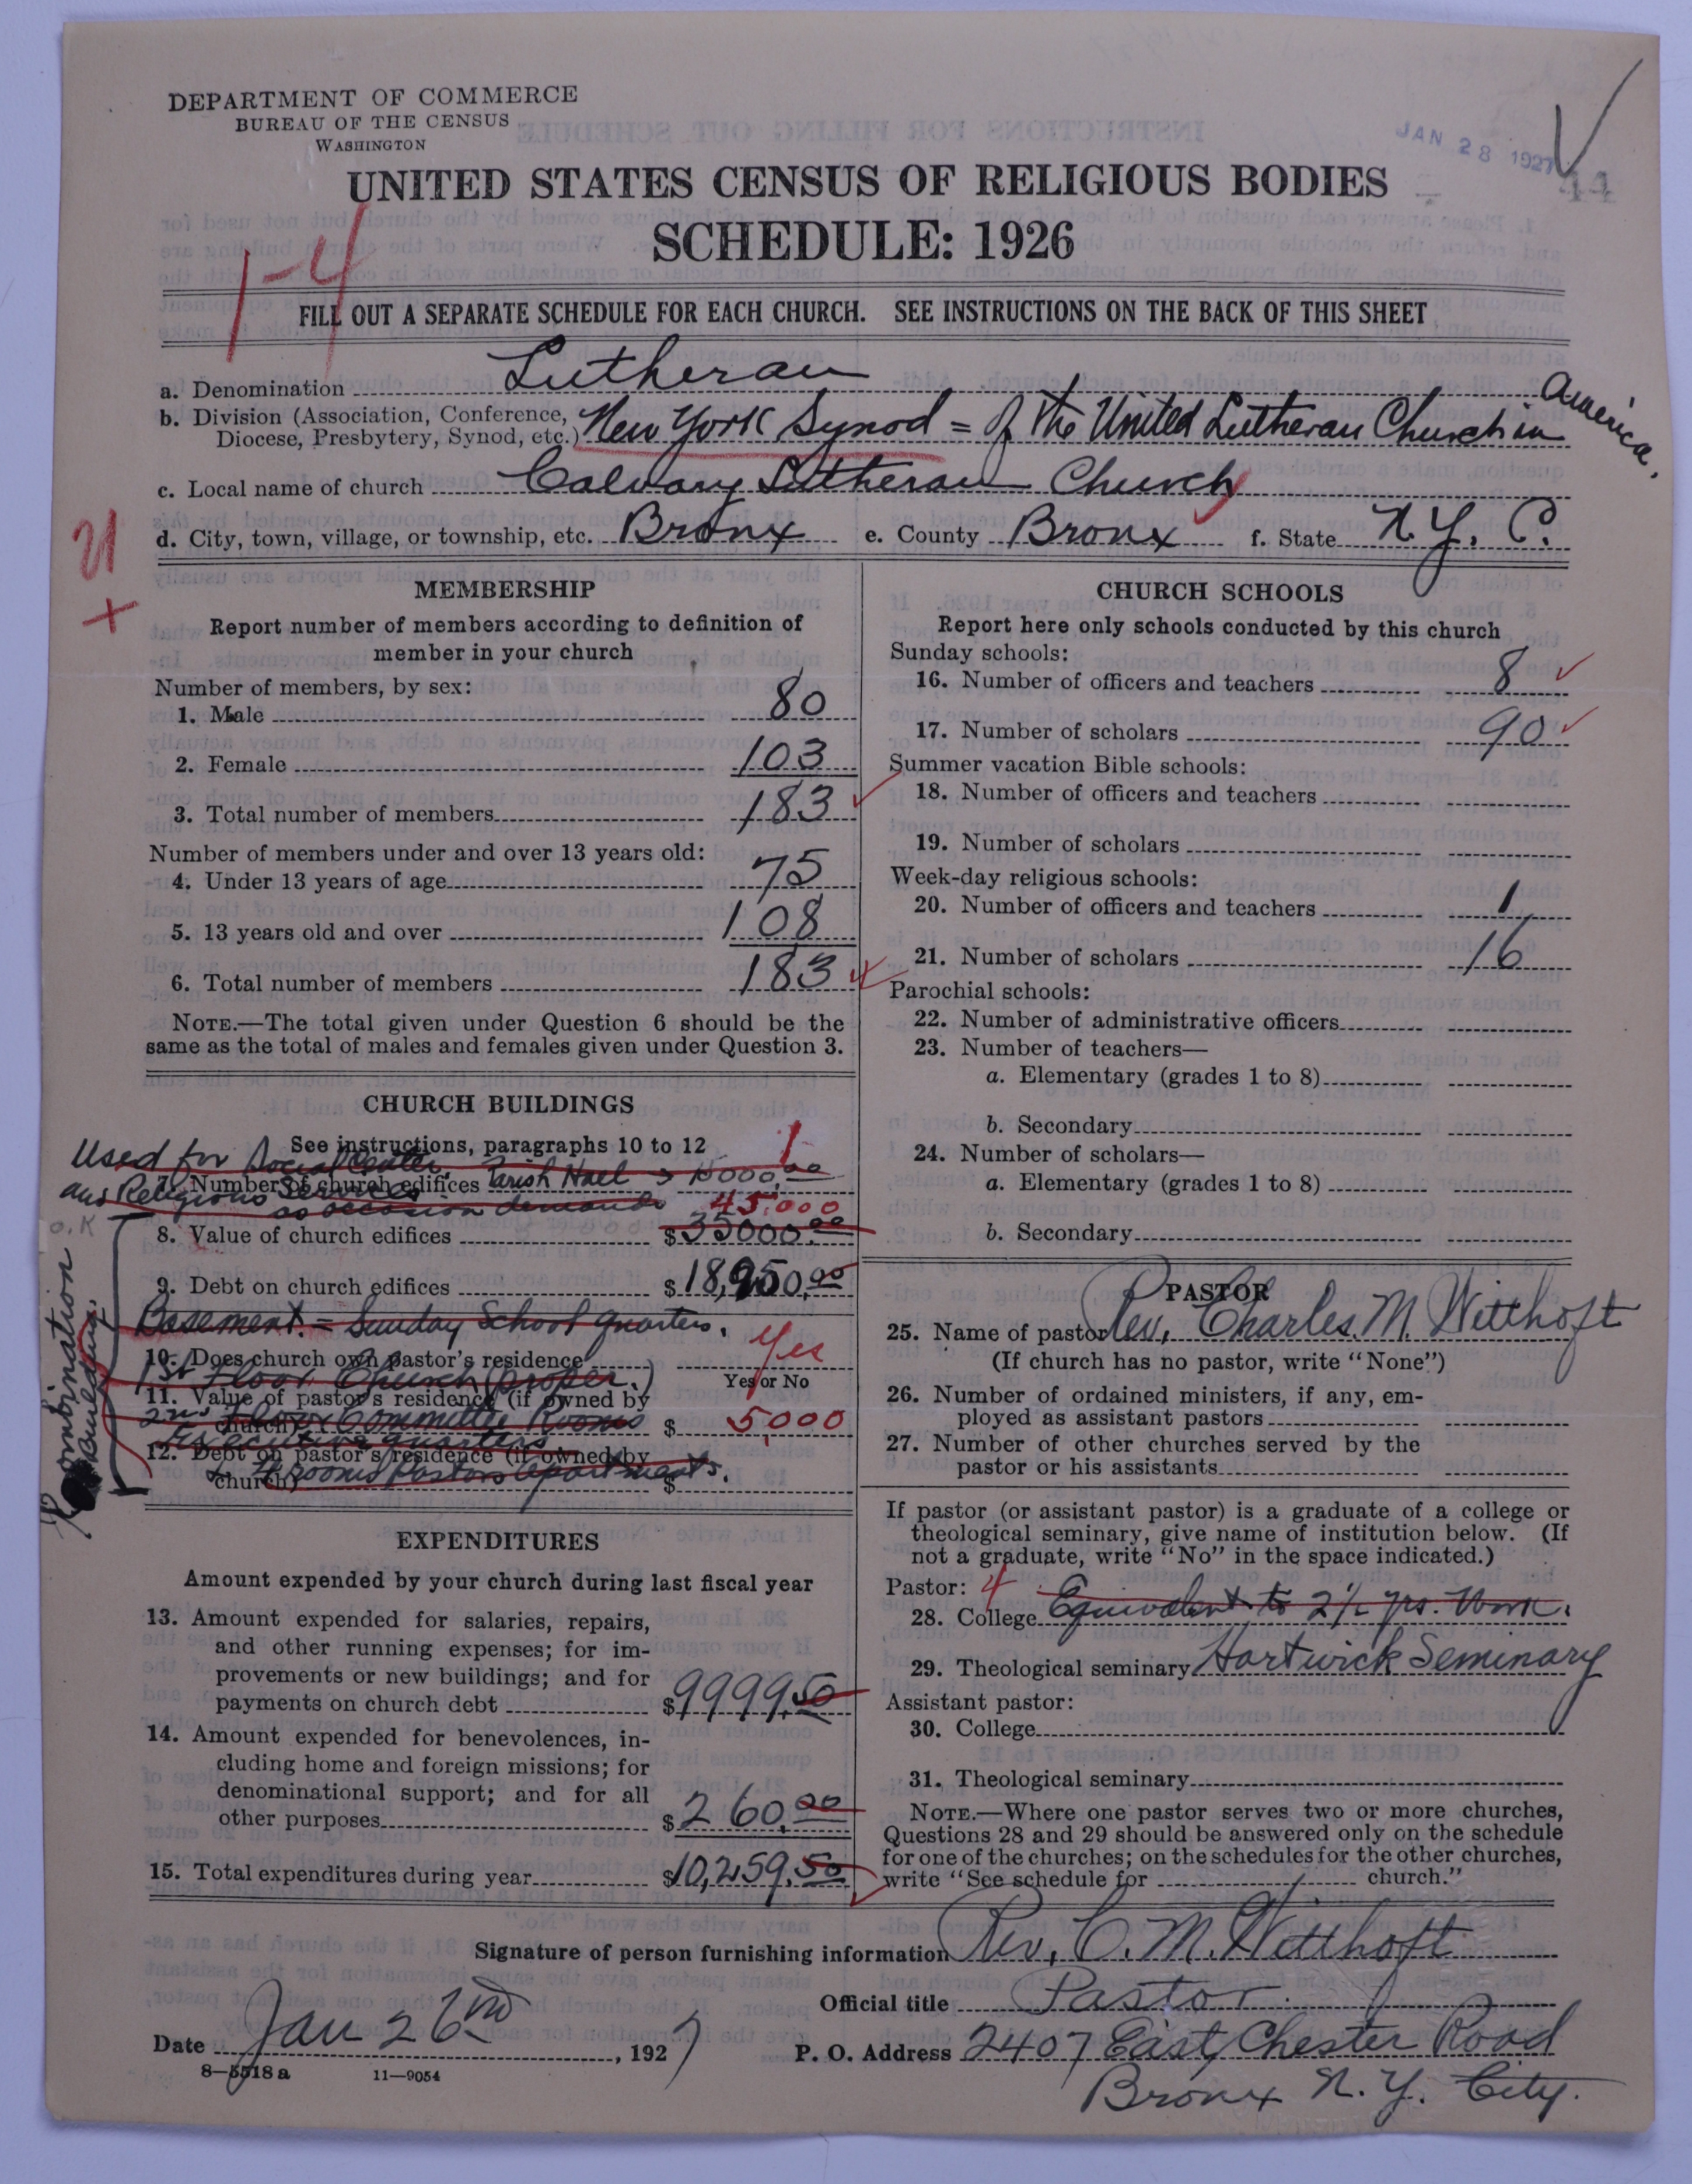 DEPARTMENT OF COMMERCE
BUREAU OF THE CENSUS
WASHINGTON
JAN 28 1927
44
UNITED STATES CENSUS OF RELIGIOUS BODIES
SCHEDULE: 1926
1-4
FILL OUT A SEPARATE SCHEDULE FOR EACH CHURCH. SEE INSTRUCTIONS ON THE BACK OF THIS SHEET
a. Denomination Lutheran
b. Division (Association, Conference, Diocese, Presbytery, Synod, etc.) New York Synod = Of the United Lutheran Church in America.
c. Local name of church Calvary Lutheran Church
d. City, town, village, or township, etc. Bronx e. County Bronx f. State N.Y. C.
MEMBERSHIP
Report number of members according to definition of
member in your church
Number of members, by sex:
1. Male 80
2. Female 103
3. Total number of members 183
Number of members under and over 13 years old:
4. Under 13 years of age 75
5. 13 years old and over 108
6. Total number of members 183
NOTE.—The total given under Question 6 should be the
same as the total of males and females given under Question 3.
CHURCH BUILDINGS
See instructions, paragraphs 10 to 12
Used for Social Center, Parish Hall 10000.00
7. Number of church edifices 1
and Religious Services
as occasion demands
45,000
8. Value of church edifices $35000.00
O.K
Combination Building.
9. Debt on church edifices $18,950.00
Basement. = Sunday School quarters.
10. Does church own pastor's residence Yes
Yes or No
1st Floor Church (proper.)
11. Value of pastor's residence (if owned by
church) $ 5,000
2nd Floor Committee Rooms
12. Debt on pastor's residence (if owned by
church) $
rooms Pastors apartments.
EXPENDITURES
Amount expended by your church during last fiscal year
13. Amount expended for salaries, repairs,
and other running expenses; for im-
provements or new buildings; and for
payments on church debt $9999.50
14. Amount expended for benevolences, in-
cluding home and foreign missions; for
denominational support; and for all
other purposes $260.00
15. Total expenditures during year $10,259.50
CHURCH SCHOOLS
Report here only schools conducted by this church
Sunday schools:
16. Number of officers and teachers 8
17. Number of scholars 90
Summer vacation Bible schools:
18. Number of officers and teachers
19. Number of scholars
Week-day religious schools:
20. Number of officers and teachers 1
21. Number of scholars 16
Parochial schools:
22. Number of administrative officers
23. Number of teachers—
a. Elementary (grades 1 to 8)
b. Secondary
24. Number of scholars—
a. Elementary (grades 1 to 8)
b. Secondary
PASTOR
25. Name of pastor Rev. Charles. M. Witthoft
(If church has no pastor, write "None")
26. Number of ordained ministers, if any, em-
ployed as assistant pastors
27. Number of other churches served by the
pastor or his assistants
If pastor (or assistant pastor) is a graduate of a college or
theological seminary, give name of institution below. (If
not a graduate, write "No" in the space indicated.)
Pastor: 4
28. College Equivalent to 2 1/2 yrs. Work.
29. Theological seminary Hartwick Seminary
Assistant pastor:
30. College
31. Theological seminary
NOTE.—Where one pastor serves two or more churches,
Questions 28 and 29 should be answered only on the schedule
for one of the churches; on the schedules for the other churches,
write "See schedule for church."
Signature of person furnishing information Rev. C. M. Witthoft
Official title Pastor
Date Jan 26nd, 1927
P. O. Address 2407 East Chester Road
Bronx N.Y. City.
8—5518 a 11—9054